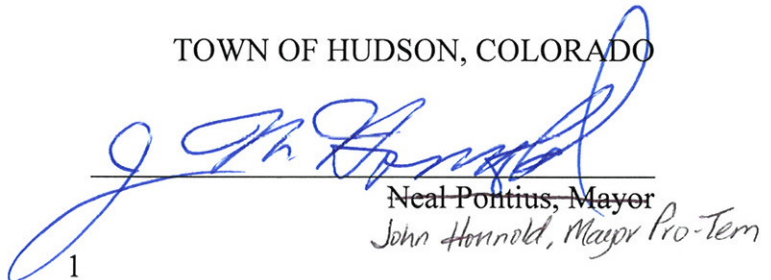 TOWN OF HUDSON, COLORADO
J Th Honnold
Neal Pontius, Mayor
John Honnold, Mayor Pro-Tem
1